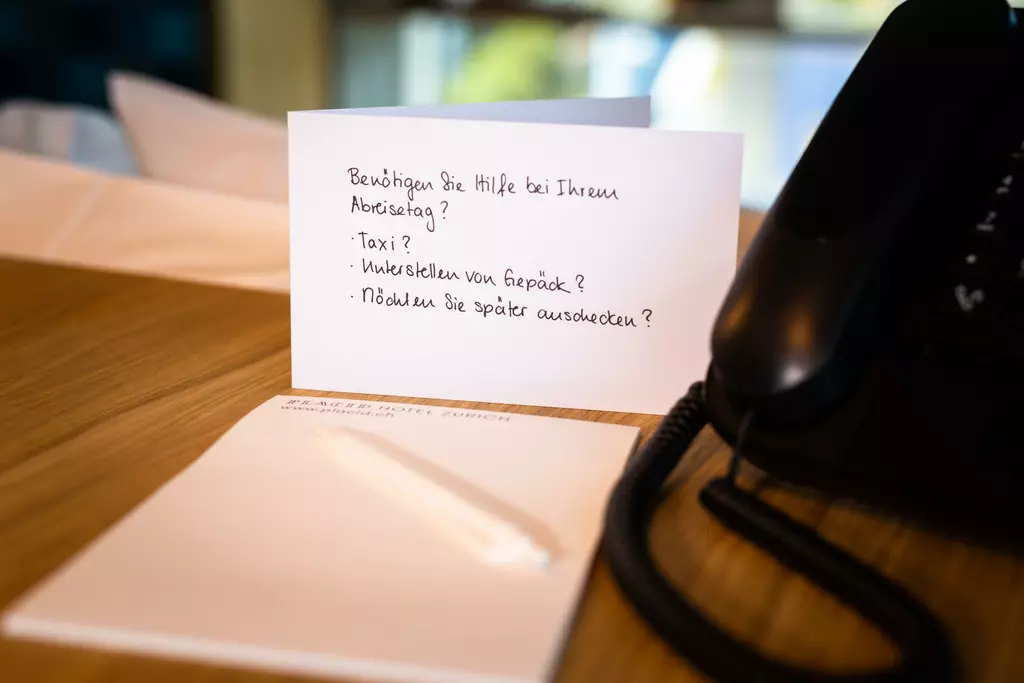 Benötigen Sie Hilfe bei Ihrem
Abreisetag?
· Taxi?
· Unterstellen von Gepäck?
· Möchten Sie später auschecken?
PLACID HOTEL ZURICH
www.placid.ch